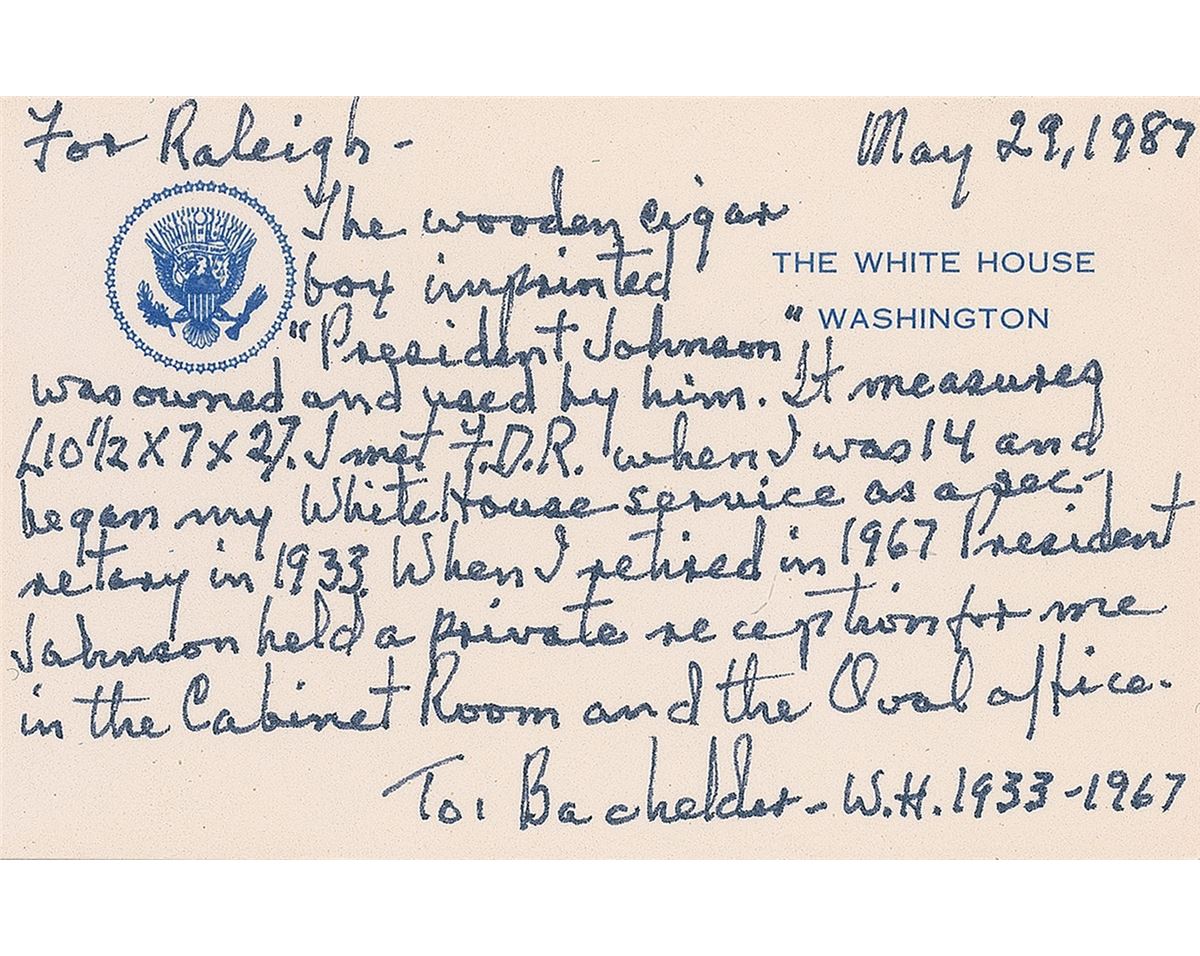 For Raleigh- May 29, 1987
The wooden cigar
box imprinted
THE WHITE HOUSE
WASHINGTON
"President Johnson"
was owned and used by him. It measures
(10 1/2 X 7 X 2). I met F.D.R. when I was 14 and
began my White House service as a sec-
retary in 1933. When I retired in 1967 President
Johnson held a private reception for me
in the Cabinet Room and the Oval office.
Toi Bachelder - W.H. 1933-1967